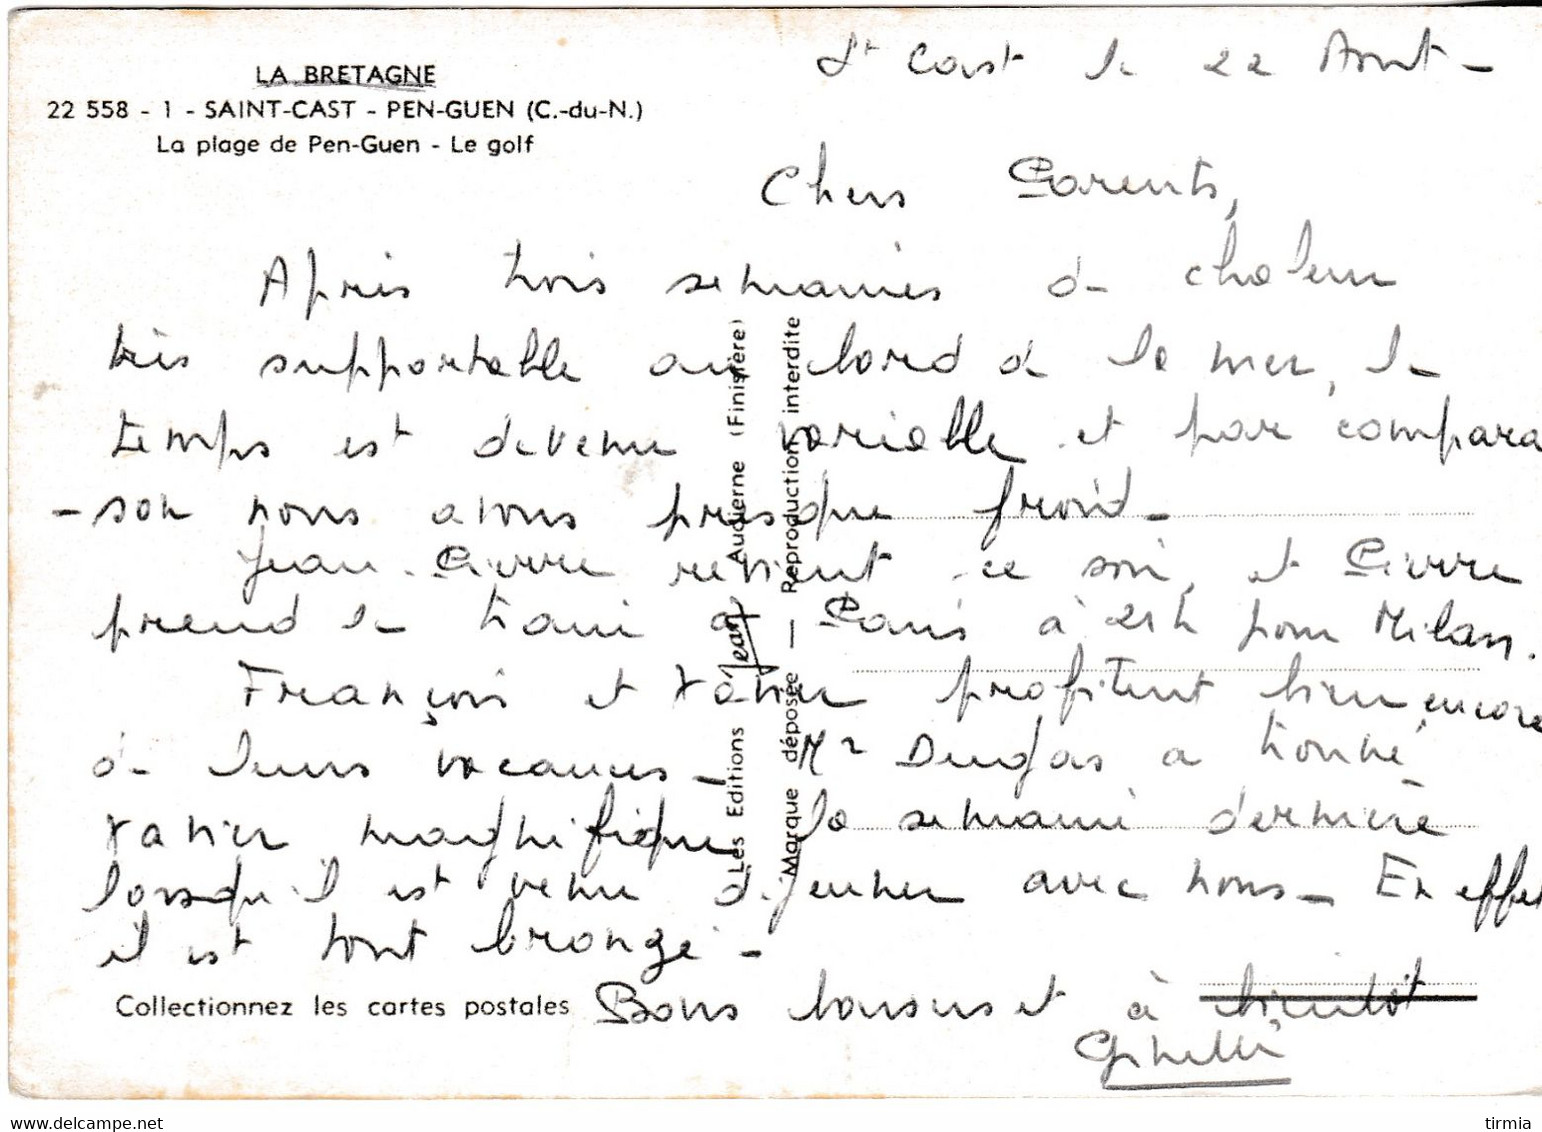 LA BRETAGNE
22 558 - 1 - SAINT-CAST - PEN-GUEN (C.-du-N.)
La plage de Pen-Guen - Le golf
St Cast le 22 Aout -
Chers Parents,
Après trois semaines de chaleur
très supportable au bord de la mer, le
temps est devenu variable et par comparai
-son nous avons presque froid -
Jean-Pierre revient ce soir, et Pierre
prend le train à Paris à 21h pour Milan.
François et Xavier profitent bien encore
de leurs vacances - Mr Dugas a trouvé
Xavier magnifique la semaine dernière
lorsqu'il est venu déjeuner avec nous - En effet
il est tout bronzé -
Bons baisers et à bientôt
Ginette
Collectionnez les cartes postales
Les Editions Jean Audierne (Finistère)
Marque déposée - Reproduction interdite
www.delcampe.net
tirmia